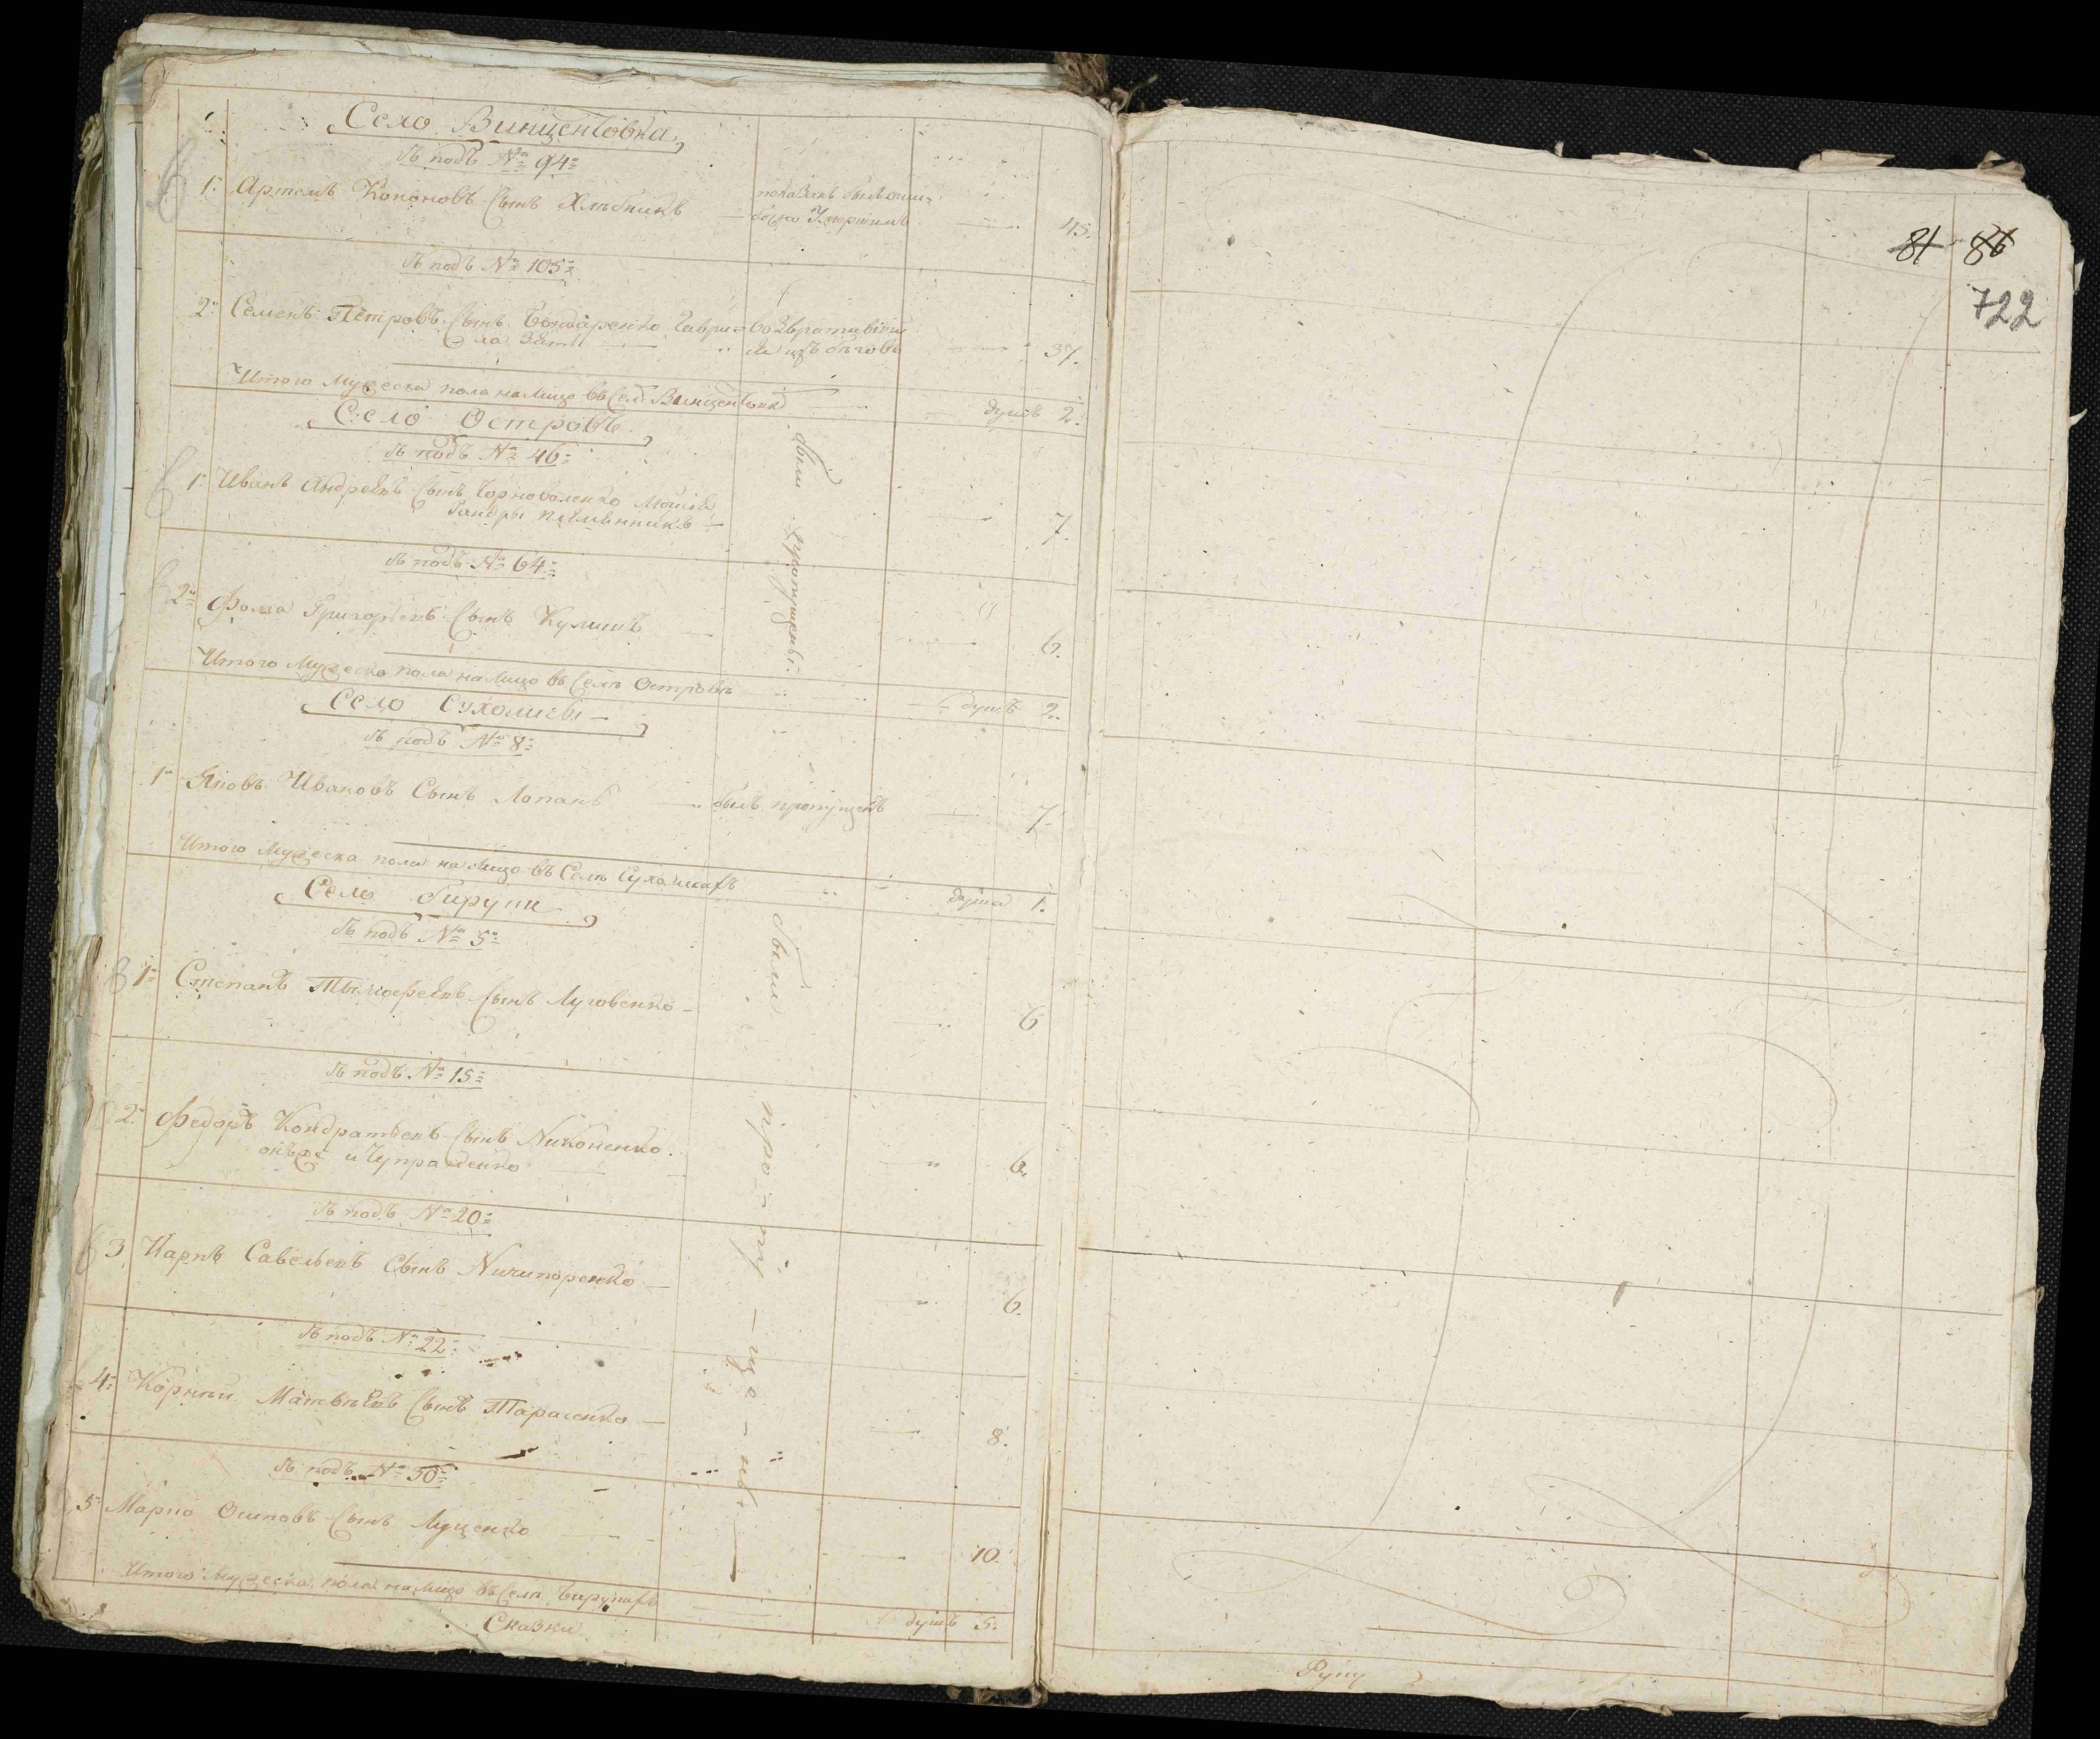 Село Винцентовка,
Въ подъ № 94
1. Артемъ Кононовъ сынъ Хлѣбникъ — показанъ былъ оши=
бочно умершимъ — 45.
Въ подъ № 105
2. Семенъ Петровъ сынъ Бондаренко Гаври= возвративший
ла зять — ся изъ бѣговъ — 37.
Итого мужеска пола на лицо въ селѣ Винцентовкѣ душъ 2.
Село Островъ
Въ подъ № 46
были пропущены
1. Иванъ Андреевъ сынъ
племянникъ — 7.
Въ подъ № 64
2. Фома Григорьевъ сынъ Кулишъ — 6.
Итого мужеска пола на лицо въ селѣ Островѣ душъ 2.
Село Сухолисы
Въ подъ № 8
1. Яковъ Ивановъ сынъ Лопанъ — былъ пропущенъ — 7.
Итого мужеска пола на лицо въ селѣ Сухолисахъ душа 1.
Село Бируки
Въ подъ № 5
были про-пу-ще-ны
1. Степанъ Тымофеевъ сынъ Луговенко — 6
Въ подъ № 15
2. Федоръ Кондратьевъ сынъ Никоненко
онъ же и — 6.
Въ подъ № 20
3 Карпъ Савельевъ сынъ Ничипоренко — 6.
Въ подъ № 22
4. Корнѣй Матвѣевъ сынъ Тарасенко — 8.
Въ подъ № 50
5. Марко Осиповъ сынъ Луценко — 10.
Итого мужеска пола на лицо въ селѣ Бирукахъ душъ 5.
Сказки
81 86
722
Руку